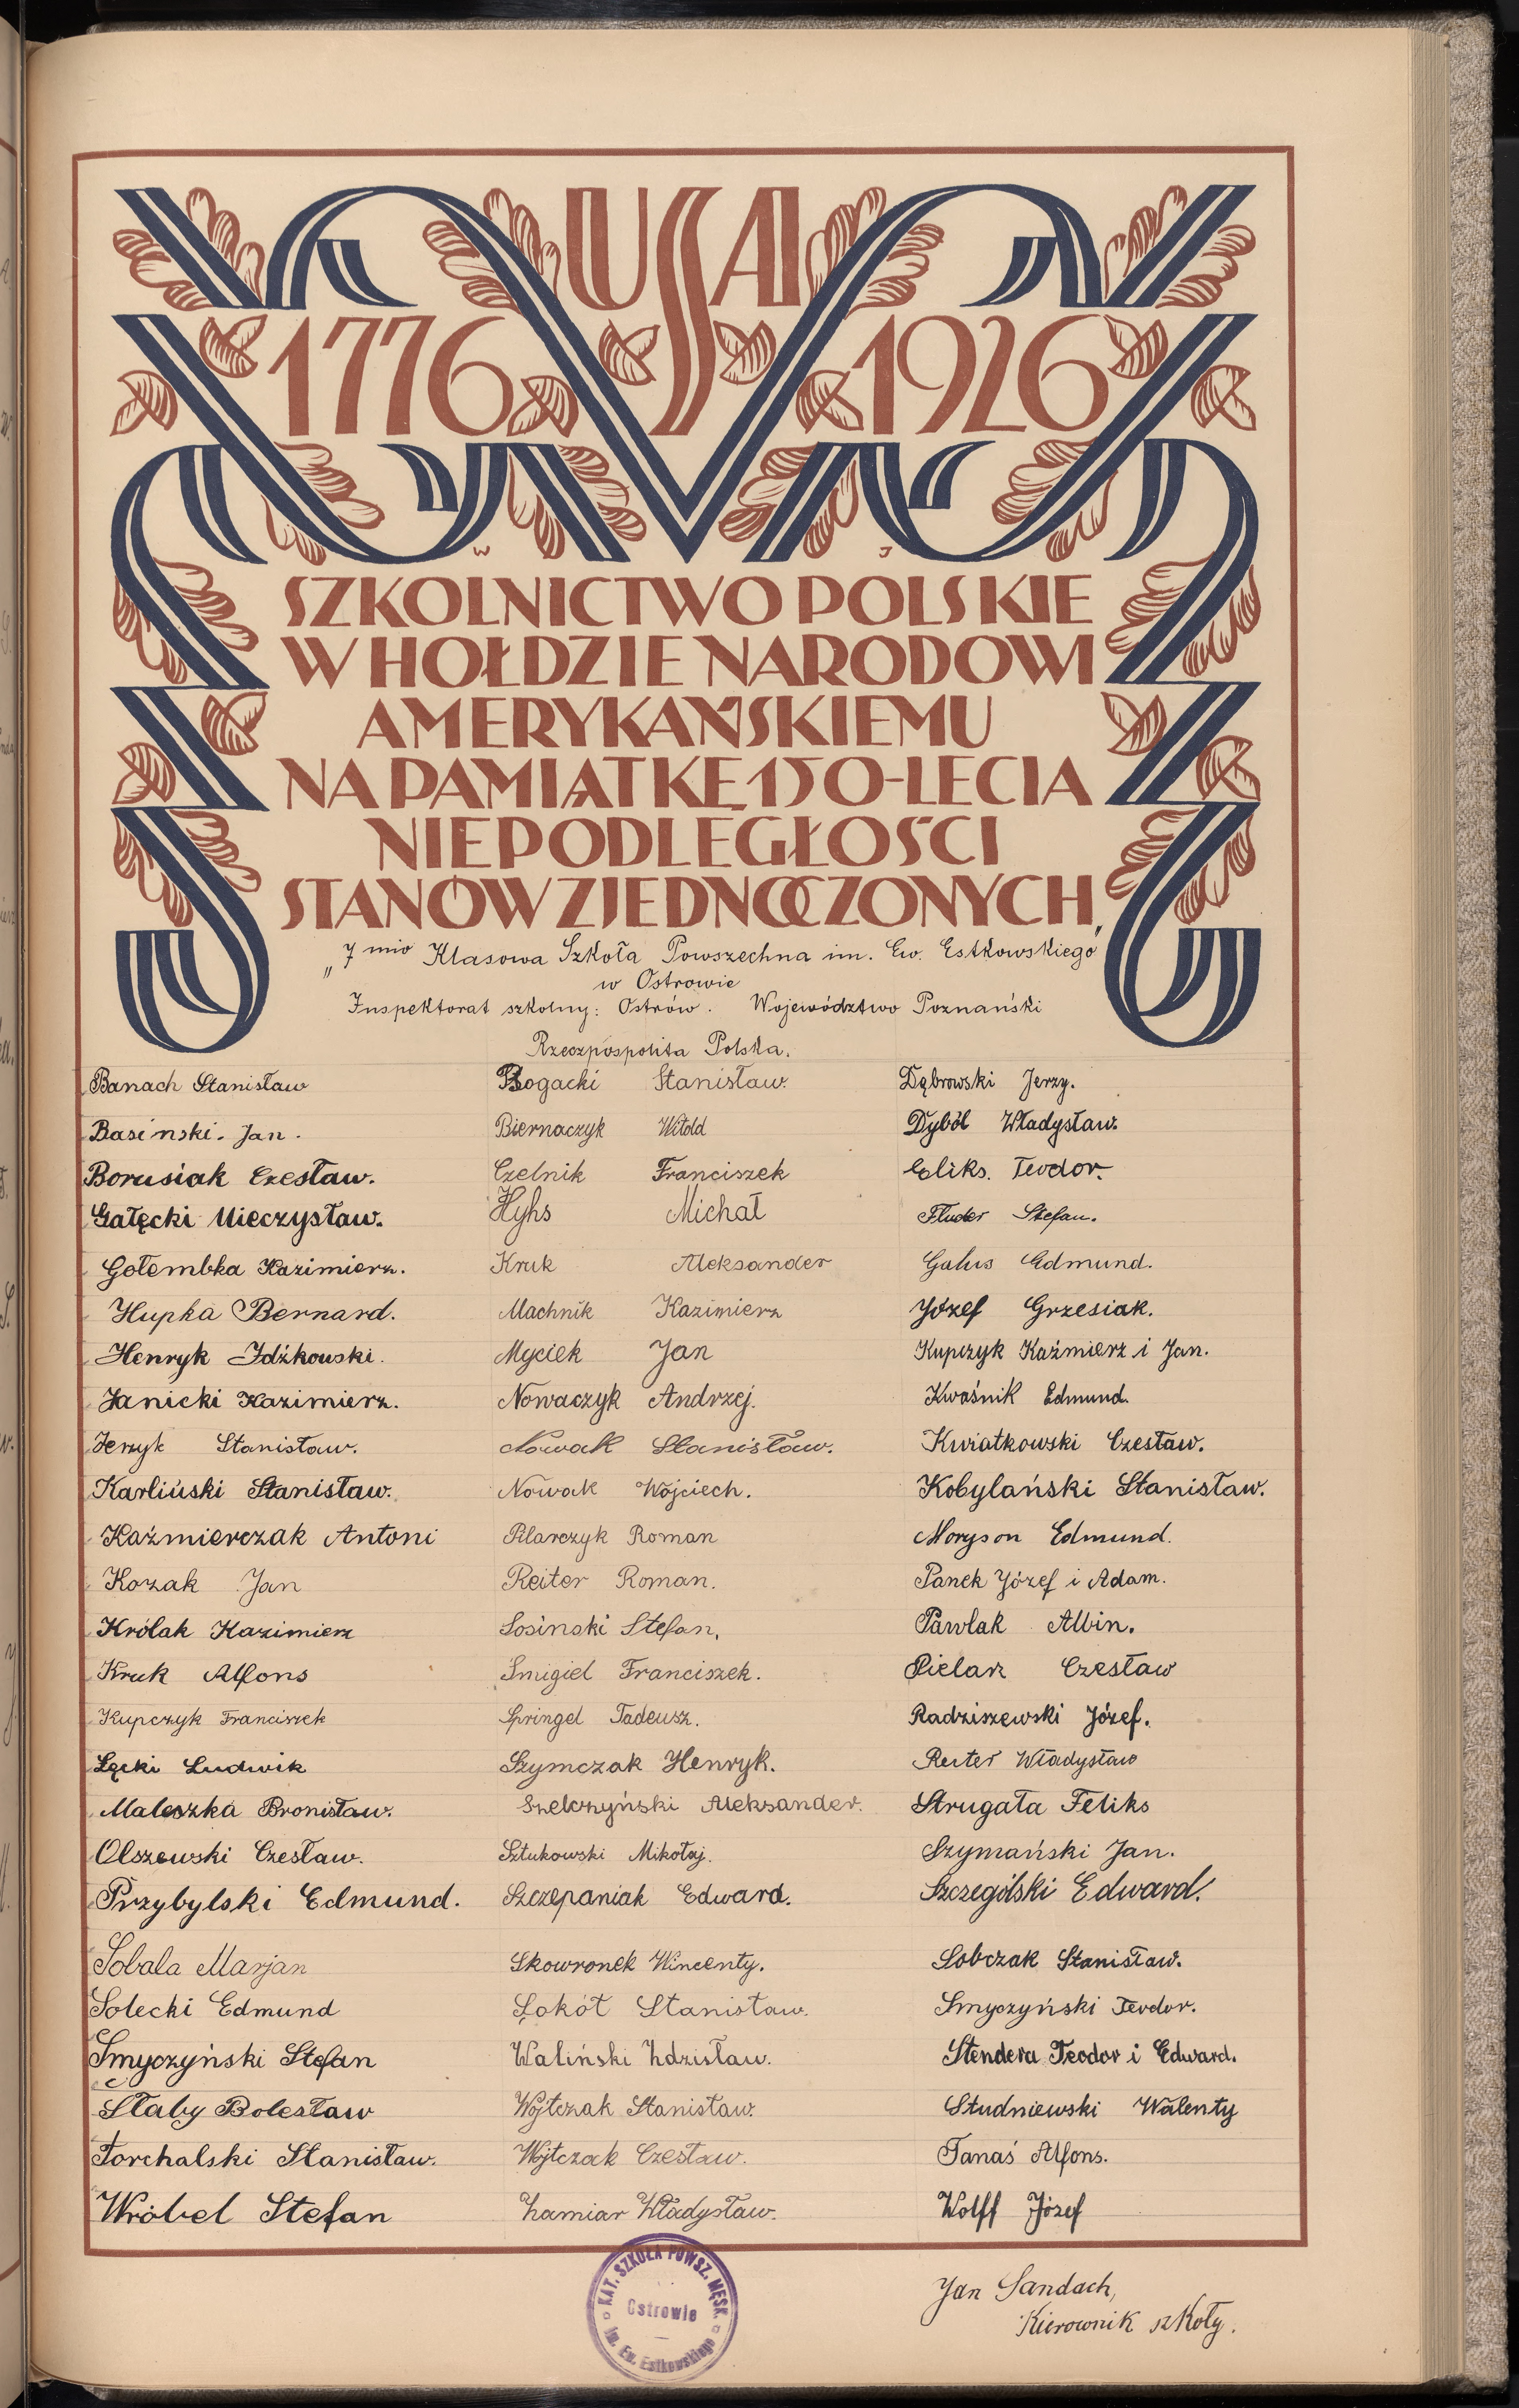 USA
1776 1926
W J
SZKOLNICTWO POLSKIE
W HOŁDZIE NARODOWI
AMERYKAŃSKIEMU
NA PAMIĄTKĘ 150-LECIA
NIEPODLEGŁOŚCI
STANÓW ZJEDNOCZONYCH
„7 mio Klasowa Szkoła Powszechna im. Ew. Estkowskiego"
w Ostrowie
Inspektorat szkolny: Ostrów. Województwo Poznański
Rzeczpospolita Polska.
Banach Stanisław
Basiński. Jan.
Borusiak Czesław.
Gałęcki Mieczysław.
Gołembka Kazimierz.
Hupka Bernard.
Henryk Idźkowski.
Janicki Kazimierz.
Jerzyk Stanisław.
Karliński Stanisław.
Kaźmierczak Antoni
Kozak Jan
Królak Kazimierz
Kruk Alfons
Kupczyk Franciszek
Łącki Ludwik
Maleszka Bronisław.
Olszewski Czesław.
Przybylski Edmund.
Sobala Marjan
Solecki Edmund
Smyczyński Stefan
Słaby Bolesław
Torchalski Stanisław.
Wróbel Stefan
Bogacki Stanisław.
Biernaczyk Witold
Czelnik Franciszek
Hyhs Michał
Kruk Aleksander
Machnik Kazimierz
Myciek Jan
Nowaczyk Andrzej.
Nowak Stanisław.
Nowak Wojciech.
Pilarczyk Roman
Reiter Roman.
Sosinski Stefan.
Smigiel Franciszek.
Springel Tadeusz.
Szymczak Henryk.
Szelczyński Aleksander.
Sztukowski Mikołaj.
Szczepaniak Edward.
Skowronek Wincenty.
Sokół Stanisław.
Waliński Zdzisław.
Wojtczak Stanisław.
Wojtczak Czesław.
Zamiar Władysław.
Dąbrowski Jerzy.
Dybół Władysław.
Eliks. Teodor.
Fluder Stefan.
Galus Edmund.
Józef Grzesiak.
Kupczyk Kaźmierz i Jan.
Kwaśnik Edmund.
Kwiatkowski Czesław.
Kobylański Stanisław.
Moryson Edmund.
Panek Józef i Adam.
Pawlak Albin.
Pielarz Czesław
Radziszewski Józef.
Reiter Władysław
Strugała Feliks
Szymański Jan.
Szczególski Edward.
Sobczak Stanisław.
Smyczyński Teodor.
Stendera Teodor i Edward.
Studniewski Walenty
Tanaś Alfons.
Wolff Józef
KAT. SZKOŁA POWSZ. MĘSK.
Ostrowie
im. Ew. Estkowskiego
Jan Sandach,
Kierownik szkoły.